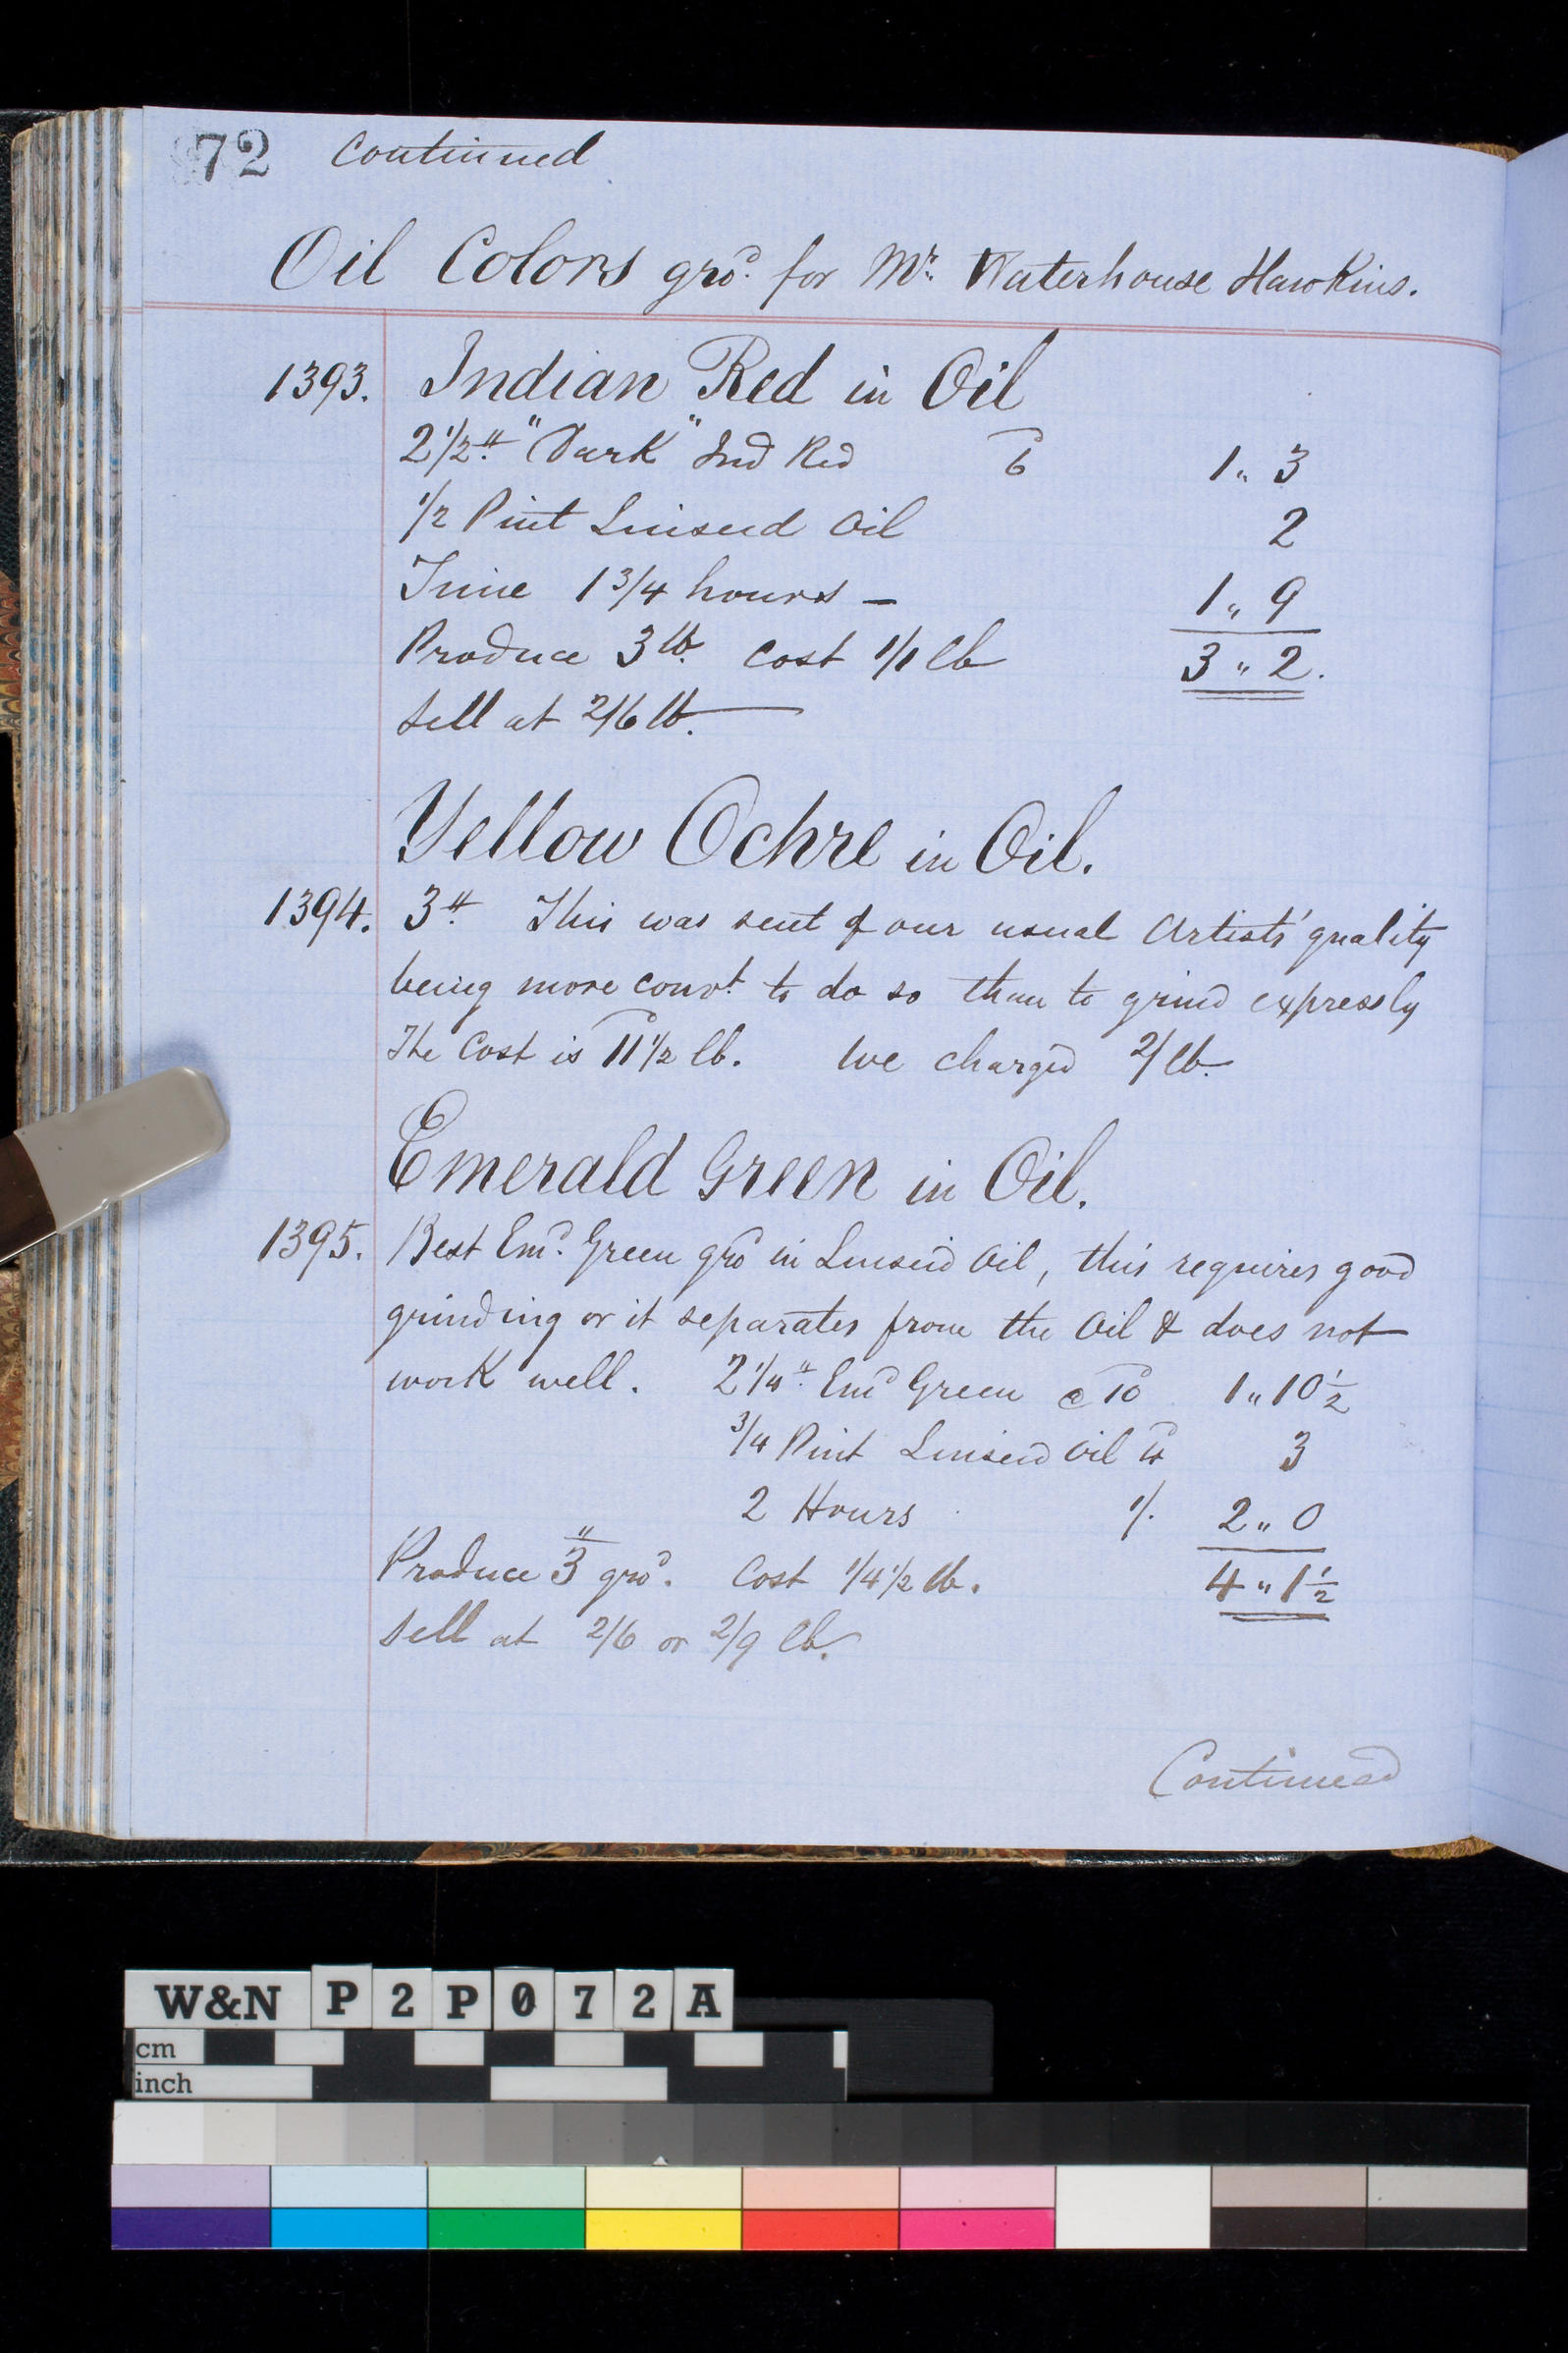 72 Continued
Oil Colors gro.d for Mr. Waterhouse Hawkins.
1393. Indian Red in Oil
2 1/2 lb. "Dark" Ind Red 6d 1 " 3
1/2 Pint Linseed Oil 2
Time 1 3/4 hours — 1 " 9
Produce 3 lb. Cost 1/1 lb 3 " 2.
Sell at 2/6 lb.
Yellow Ochre in Oil.
1394. 3 lb. This was sent of our usual Artists' quality
being more convt. to do so than to grind expressly
The Cost is 11 1/2d lb. We charged 2/ lb.
Emerald Green in Oil.
1395. Best Emd. Green grd in Linseed Oil, this requires good
grinding or it separates from the Oil & does not
work well. 2 1/4 lb. Emd Green @ 10d 1 " 10 1/2
3/4 Pint Linseed Oil 4d 3
2 Hours 1/. 2 " 0
Produce 3 lb grod. Cost 1/4 1/2 lb. 4 " 1 1/2
Sell at 2/6 or 2/9 lb.
Continued
W&N P2P072A
cm
inch